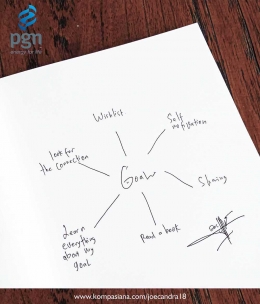 pgn
energy for life
Wishlist
Self
motivation
look for
the connection
Goal
Sharing
Learn
everything
about my
goal
Read a book
www.kompasiana.com/joecandra18